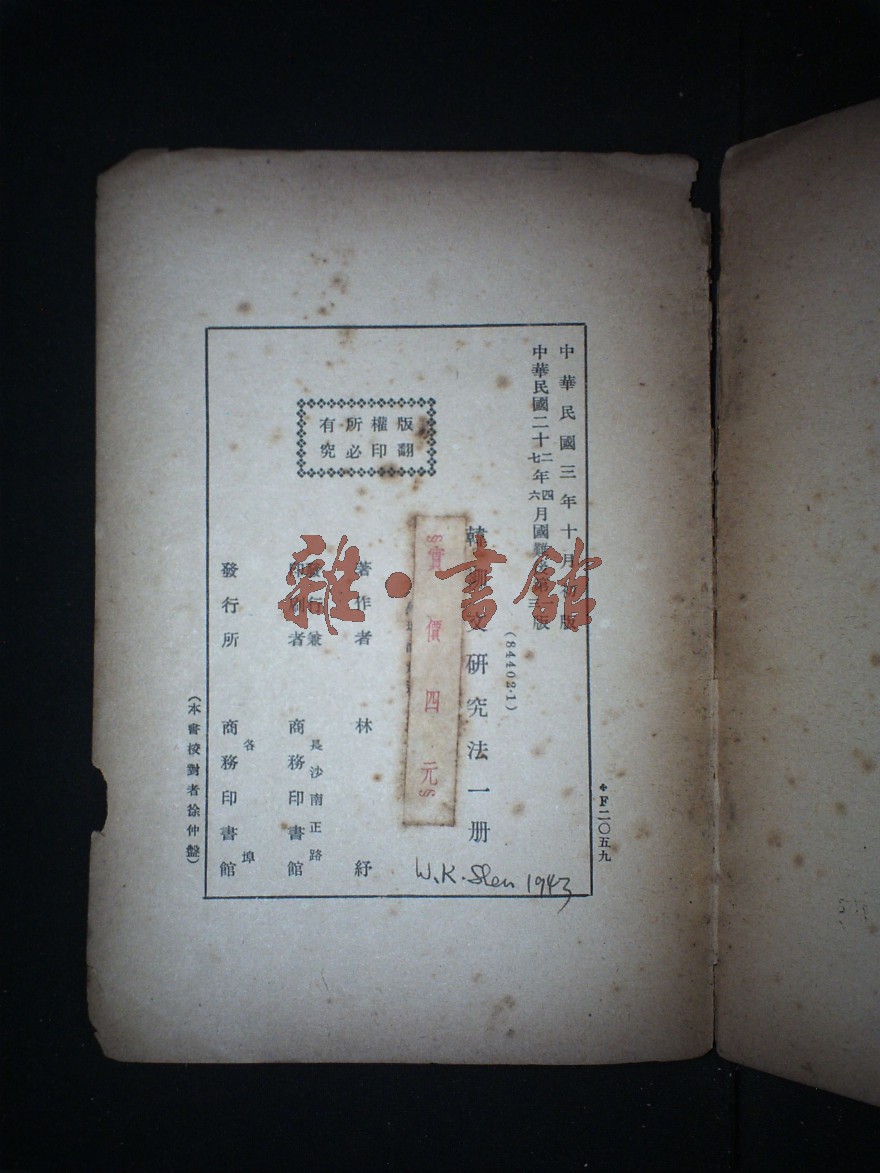 中華民國三年十月初版
中華民國二十二年四月國難後第
七六三版
(84402·1)
韓柳文研究法一册
§實價四元§
著作者 林紓
發行兼
印刷者
長沙南正路
商務印書館
發行所
各埠
商務印書館
版權所有
翻印必究
(本書校對者徐仲盤)
F二〇五九
W.K. Shen 1943
雜·書館